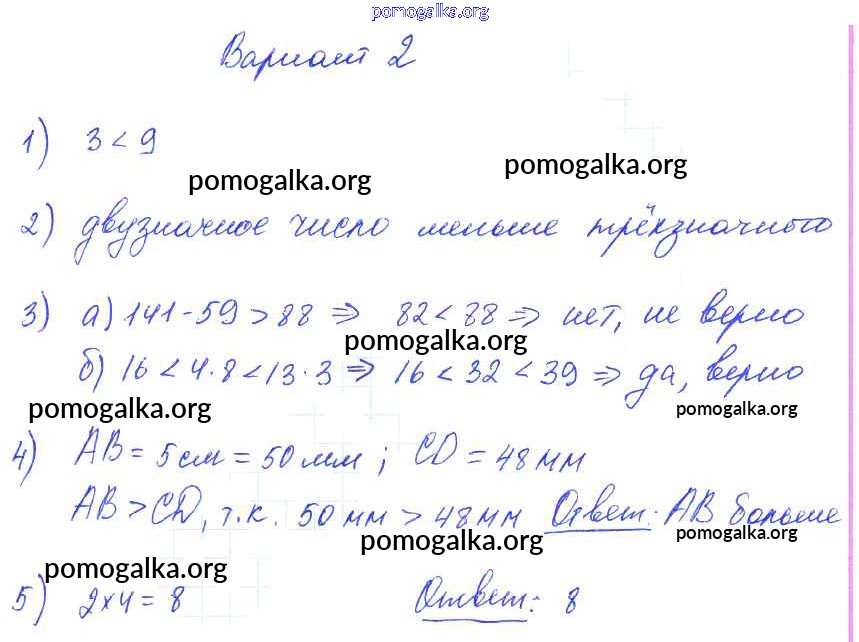 pomogalka.org
Вариант 2
1) 3 < 9
pomogalka.org
pomogalka.org
2) двузначное число меньше трёхзначного
3) а) 141 - 59 > 88 ⇒ 82 < 88 ⇒ нет, не верно
pomogalka.org
б) 16 < 4 · 8 < 13 · 3 ⇒ 16 < 32 < 39 ⇒ да, верно
pomogalka.org
pomogalka.org
4) AB = 5 см = 50 мм ; CD = 48 мм
AB > CD, т.к. 50 мм > 48 мм Ответ: AB больше
pomogalka.org
pomogalka.org
pomogalka.org
5) 2 × 4 = 8 Ответ: 8